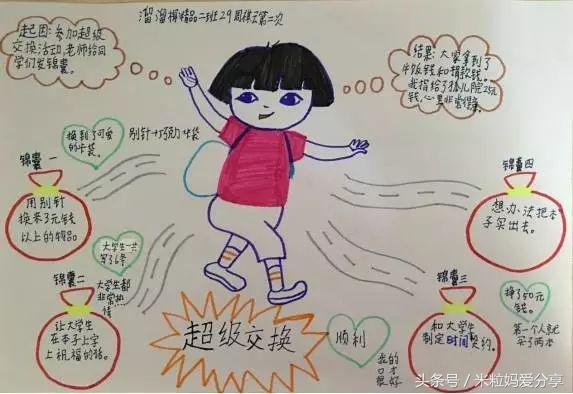 溜溜梅精品二班29周稹又第二次
起因:参加超级
交换活动,老师给同
学们发锦囊。
结果:大家拿到了
午饭钱和捐款钱。
我捐给了孤儿院25元
钱,心里非常得意。
换到了可爱
的卡袋。
别针→巧克力→卡袋
锦囊一
用别针
换来3元钱
以上的物品。
锦囊四
想办法把本
子买出去。
大学生一共
写了6条
锦囊二
大学生都
非常热
情
让大学生
在本子上写
上祝福的话。
锦囊三
和大学生
制定时间契约。
挣了50元
钱。
第一个人就
买了两本
超级交换
顺利
我的
口才
很好
头条号 / 米粒妈爱分享